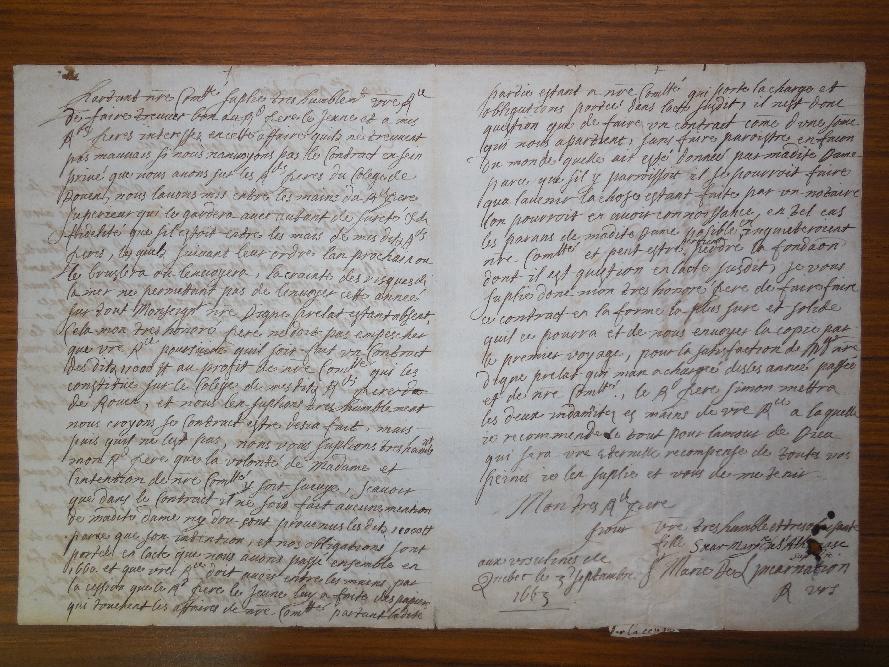 Partant nre Com^té suplie tres humblem^t vre R^ce
de faire trouver bon au R^d pere le Jeune et a mes
R^ds peres interessés en cette affaire quils ne treuvent
pas mauvais si nous nanvoyons pas le Contract en sein
privé que nous avons sur les R^ds peres du Colege de
Rouen, nous lavons mis entre les mains du R^d pere
superieur qui le gardera avec autant de sureté et de
fidelité que sil estoit entre les mains de mes dits R^ds
peres, lesquels suivant leur ordre lan prochain ou
le bruslera ou lenvoyera, la crainte des risques de
la mer ne permettant pas de lenvoyer cette année
sur tout Monseigr nre Digne prelat estant absent,
Cela mon tres honoré pere ne doit pas empescher
que vre R^ce poursuive quil soit fait un Contract
des dits 11000 tt au profit de nre Com^té qui les
constitue sur le Colege de mes dits R^ds peres
de Rouen, et nous len suplions tres humblement
nous croyons se Contract estre desia fait mais
puis quil ne lest pas, nous vous suplions tres humb^t
mon R^d pere que la volonté de madame et
lintention de nre Com^té soit suivye, scavoir
que dans le Contract il ne soit fait aucune mention
de madite dame ny dou sont provenus les dits
parce que son intention, et nos obligations sont
portées en lacte que nous avons passé ensemble en
1660. et que vre R^ce doit avoir entre les mains, par
la cession que le R^d pere le Jeune luy a faite des papiers
qui touchent les affaires de nre Com^té partant ladite
partie estant a nre Com^té qui porte la charge et
obligations portées dans lacte susdit, il nest donc
question que de faire un contract come dune some
qui nous apartient, sans faire paroistre en facon
du monde quelle ait esté donnée par madite Dame
parce que sil y paroissoit il se pourroit faire
qua lavenir la chose estant faite par un notaire
lon pourroit en avoir connoissance, en tel cas
les parans de madite dame posible inquieteroient
nre Com^té et peut estre perdre la fondaon
dont il est question en lacte susdit, je vous
suplie donc mon tres honoré pere de faire faire
ce contract en la forme la plus sure et solide
quil ce pourra et de nous envoyer la copie par
le premier voyage, pour la satisfaction de Mgr nre
digne prelat qui man a chargée des lannée passée
et de nre Com^té, le R^d pere Simon mettra
les deux indamitez es mains de vre R^ce a laquelle
je recommende le tout pour lamour de Dieu
qui sera vre eternelle recompense de touts vos
peines je len suplie et vous de me tenir
Mon tres R^d pere
pour vre tres humble et tres obeissante
fille Sœur
aux ursulines de
Marie De Lincarnation
Quebec le 3^e Septambre.
1663
R